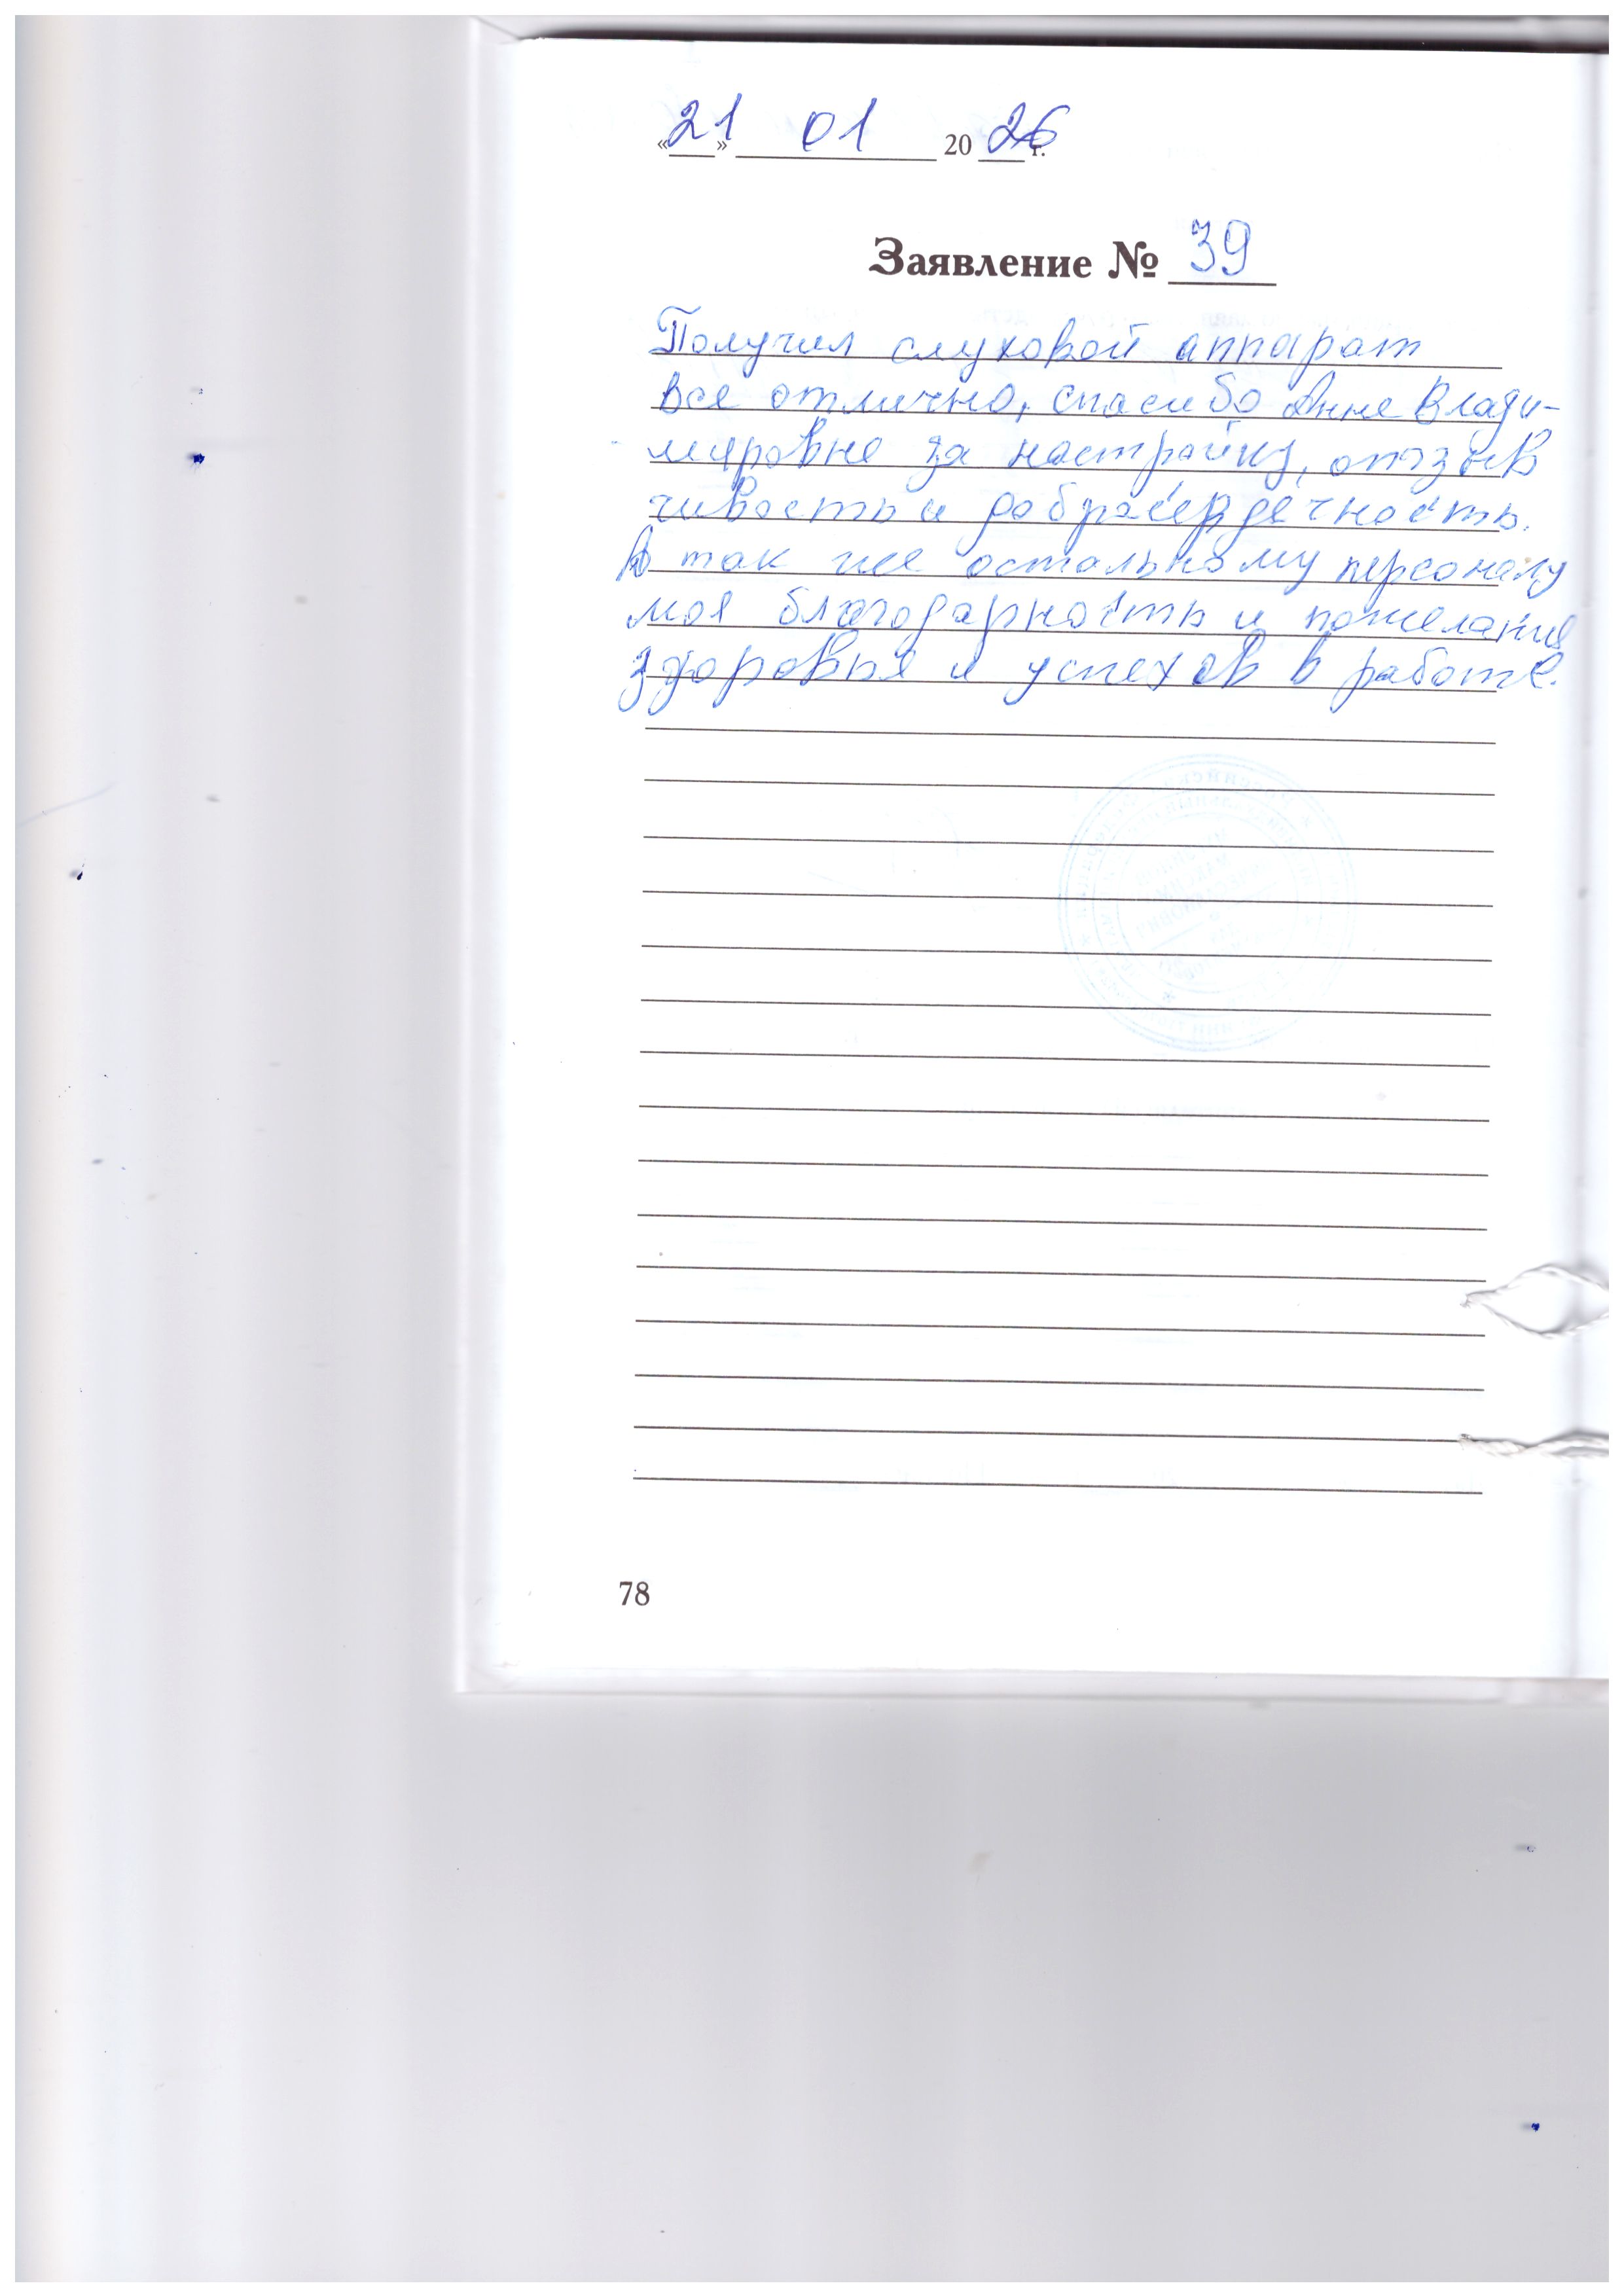 «21» 01 2026 г.
Заявление № 39
Получил слуховой аппарат
все отлично, спасибо Анне Влади-
мировне за настройку, отзыв
чивость и добросердечность.
А так же остальному персоналу
моя благодарность и пожелания
здоровья и успехов в работе.
78